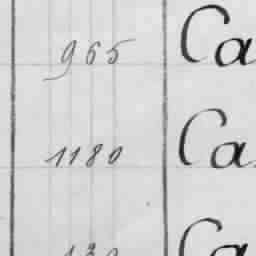 965 Ca
1180 Ca